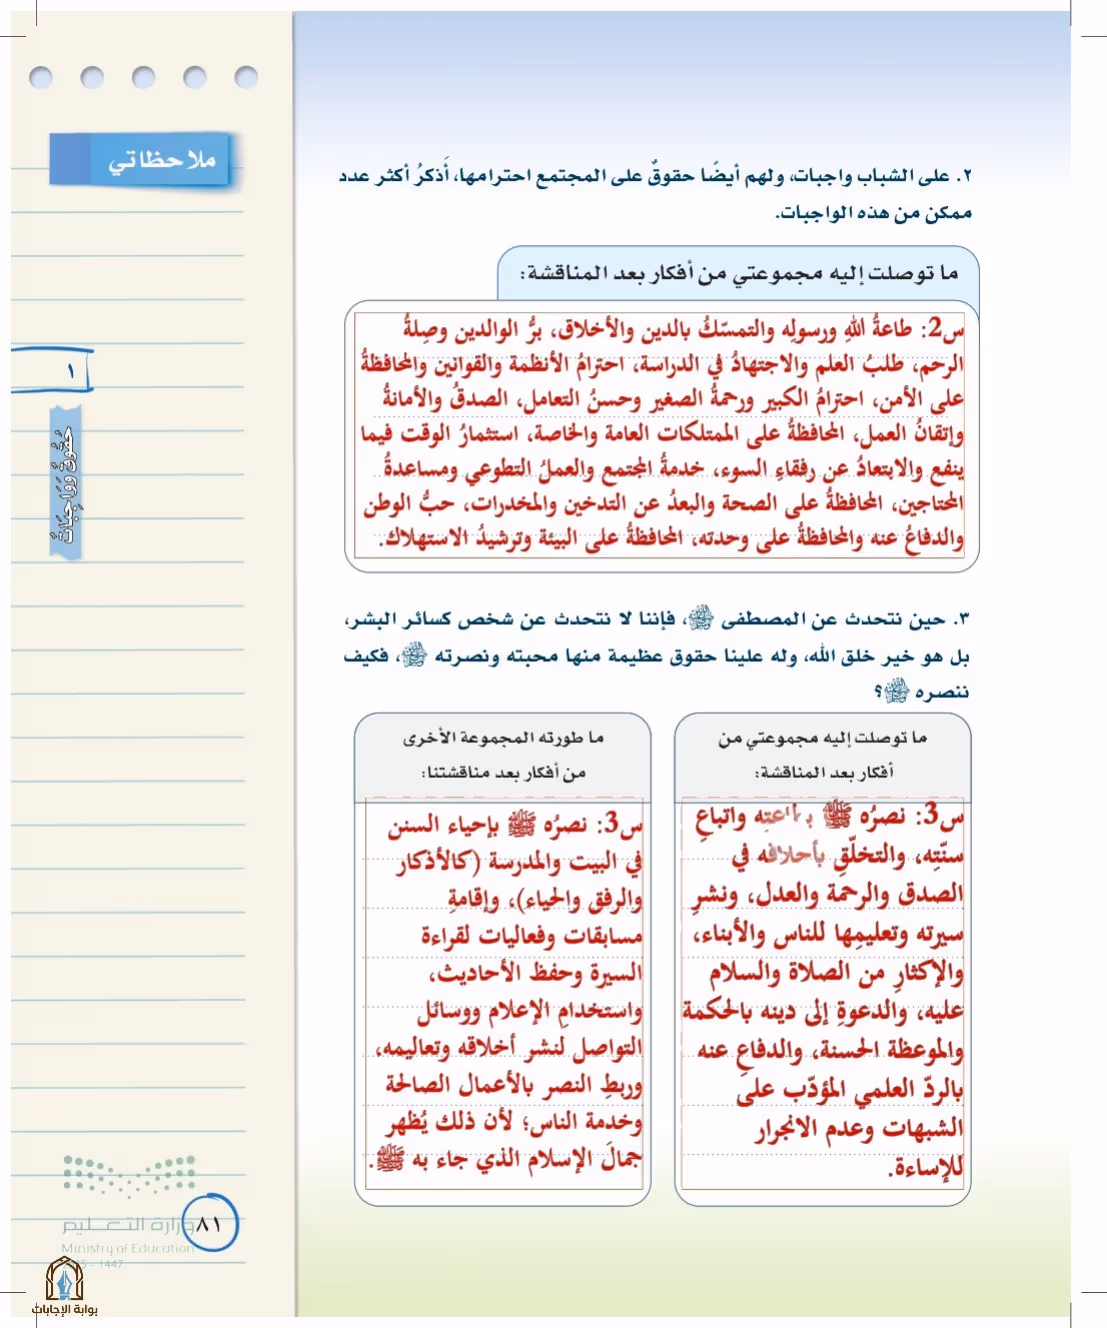 ملاحظاتي
٢. على الشباب واجبات، ولهم أيضًا حقوقٌ على المجتمع احترامها، أَذكرُ أكثر عدد
ممكن من هذه الواجبات.
ما توصلت إليه مجموعتي من أفكار بعد المناقشة:
س2: طاعةُ اللهِ ورسولِه والتمسّكُ بالدين والأخلاق، برُّ الوالدين وصِلةُ
الرحم، طلبُ العلم والاجتهادُ في الدراسة، احترامُ الأنظمة والقوانين والمحافظةُ
على الأمن، احترامُ الكبير ورحمةُ الصغير وحسنُ التعامل، الصدقُ والأمانةُ
وإتقانُ العمل، المحافظةُ على الممتلكات العامة والخاصة، استثمارُ الوقت فيما
ينفع والابتعادُ عن رفقاءِ السوء، خدمةُ المجتمع والعملُ التطوعي ومساعدةُ
المحتاجين، المحافظةُ على الصحة والبعدُ عن التدخين والمخدرات، حبُّ الوطن
والدفاعُ عنه والمحافظةُ على وحدته، المحافظةُ على البيئة وترشيدُ الاستهلاك.
١
حُقُوقٌ وَوَاجِبَاتٌ
٣. حين نتحدث عن المصطفى ﷺ، فإننا لا نتحدث عن شخص كسائر البشر،
بل هو خير خلق الله، وله علينا حقوق عظيمة منها محبته ونصرته ﷺ، فكيف
ننصره ﷺ؟
ما توصلت إليه مجموعتي من
أفكار بعد المناقشة:
س3: نصرُه ﷺ بطاعتِه واتباعِ
سنّتِه، والتخلّقِ بأخلاقه في
الصدق والرحمة والعدل، ونشرِ
سيرته وتعليمِها للناس والأبناء،
والإكثارِ من الصلاة والسلام
عليه، والدعوةِ إلى دينه بالحكمة
والموعظة الحسنة، والدفاعِ عنه
بالردّ العلمي المؤدّب على
الشبهات وعدم الانجرار
للإساءة.
ما طورته المجموعة الأخرى
من أفكار بعد مناقشتنا:
س3: نصرُه ﷺ بإحياء السنن
في البيت والمدرسة (كالأذكار
والرفق والحياء)، وإقامةِ
مسابقات وفعاليات لقراءة
السيرة وحفظ الأحاديث،
واستخدامِ الإعلام ووسائل
التواصل لنشر أخلاقه وتعاليمه،
وربطِ النصر بالأعمال الصالحة
وخدمة الناس؛ لأن ذلك يُظهر
جمالَ الإسلام الذي جاء به ﷺ.
وزارة التعليم
٨١
Ministry of Education
- 1447
بوابة الإجابات